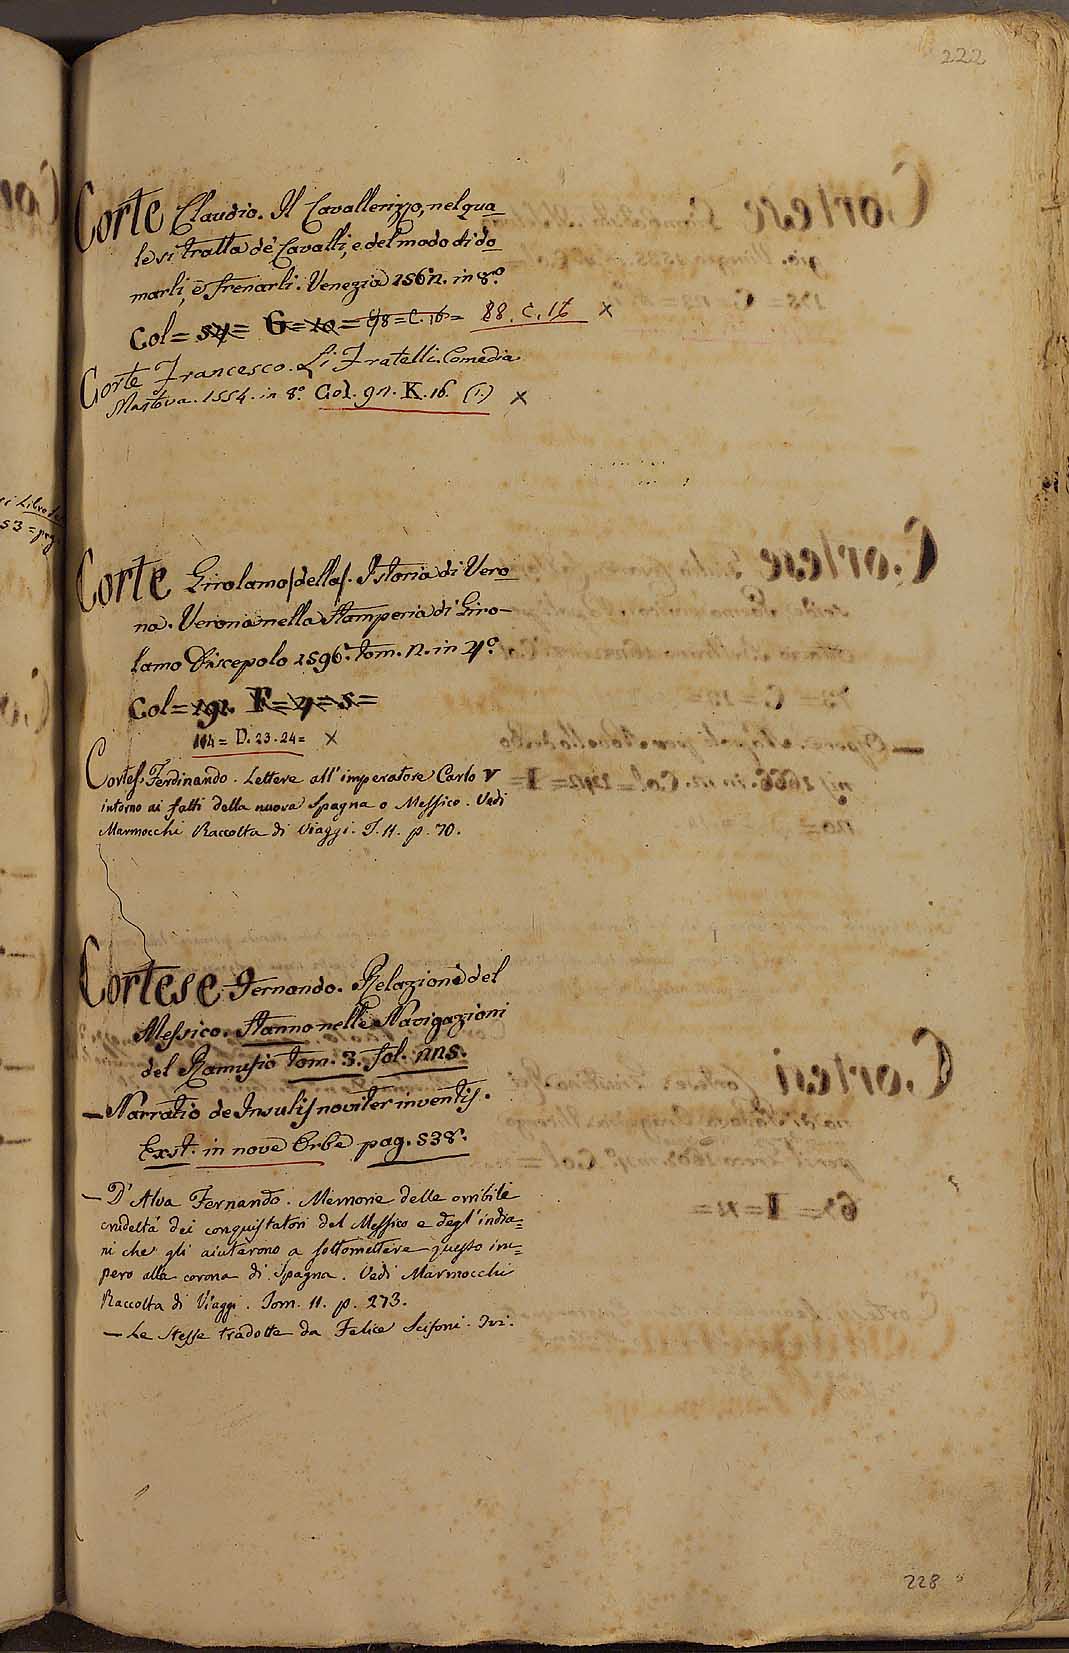 222
Corte Claudio. Il Cavallerizzo, nel qua
le si tratta de' Cavalli, e del modo di do
marli, e frenarli. Venezia 1562. in 8.º
Col = 54 = G = 10 = 88 = C. 16 = 88. C. 16 ×
Corte Francesco. Li Fratelli. Comedia
Mantova. 1554. in 8.º Col. 92. K. 16. (1.) ×
Corte Girolamo (della). Istoria di Vero
na. Verona nella Stamperia di Giro-
lamo Discepolo 1596. tom. 2. in 4.º
Col = 192. F = 4 = 5 =
114 = D. 23. 24 = ×
Cortes. Ferdinando. Lettere all'imperatore Carlo V
intorno ai fatti della nuova Spagna o Messico. Vedi
Marmocchi Raccolta di Viaggi. T. 11. p. 70.
Cortese Fernando. Relazione del
Messico. Stanno nelle Navigazioni
del Ramusio tom. 3. fol. 225.
— Narratio de Insulis noviter inventis.
Exst. in novo Orbe pag. 538.
— D'Alva Fernando. Memorie delle orribile
crudeltà dei conquistatori del Messico e degl'india=
ni che gli aiuterono a sottomettere questo im=
pero alla corona di Spagna. Vedi Marmocchi
Raccolta di Viaggi. Tom. 11. p. 273.
— Le Stesse tradotte da Felice Scifoni. Ivi.
228